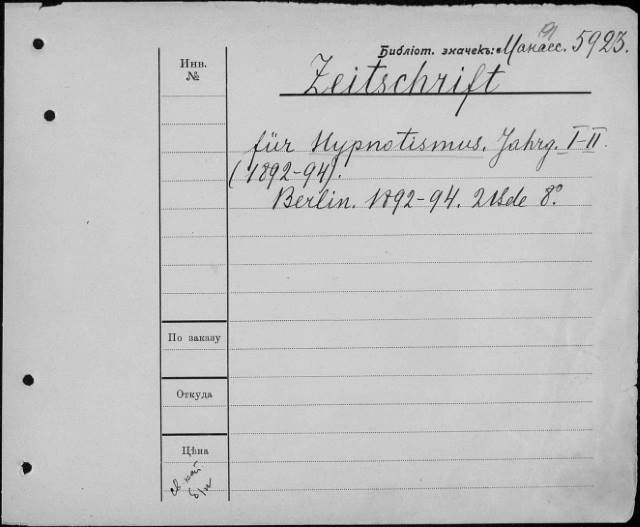 Библіот. значекъ: Манасс. 5923.
Инв.
№
Zeitschrift
für Hypnotismus. Jahrg. I-II.
(1892-94).
Berlin. 1892-94. 2 Bde 8°
По заказу
Откуда
Цѣна